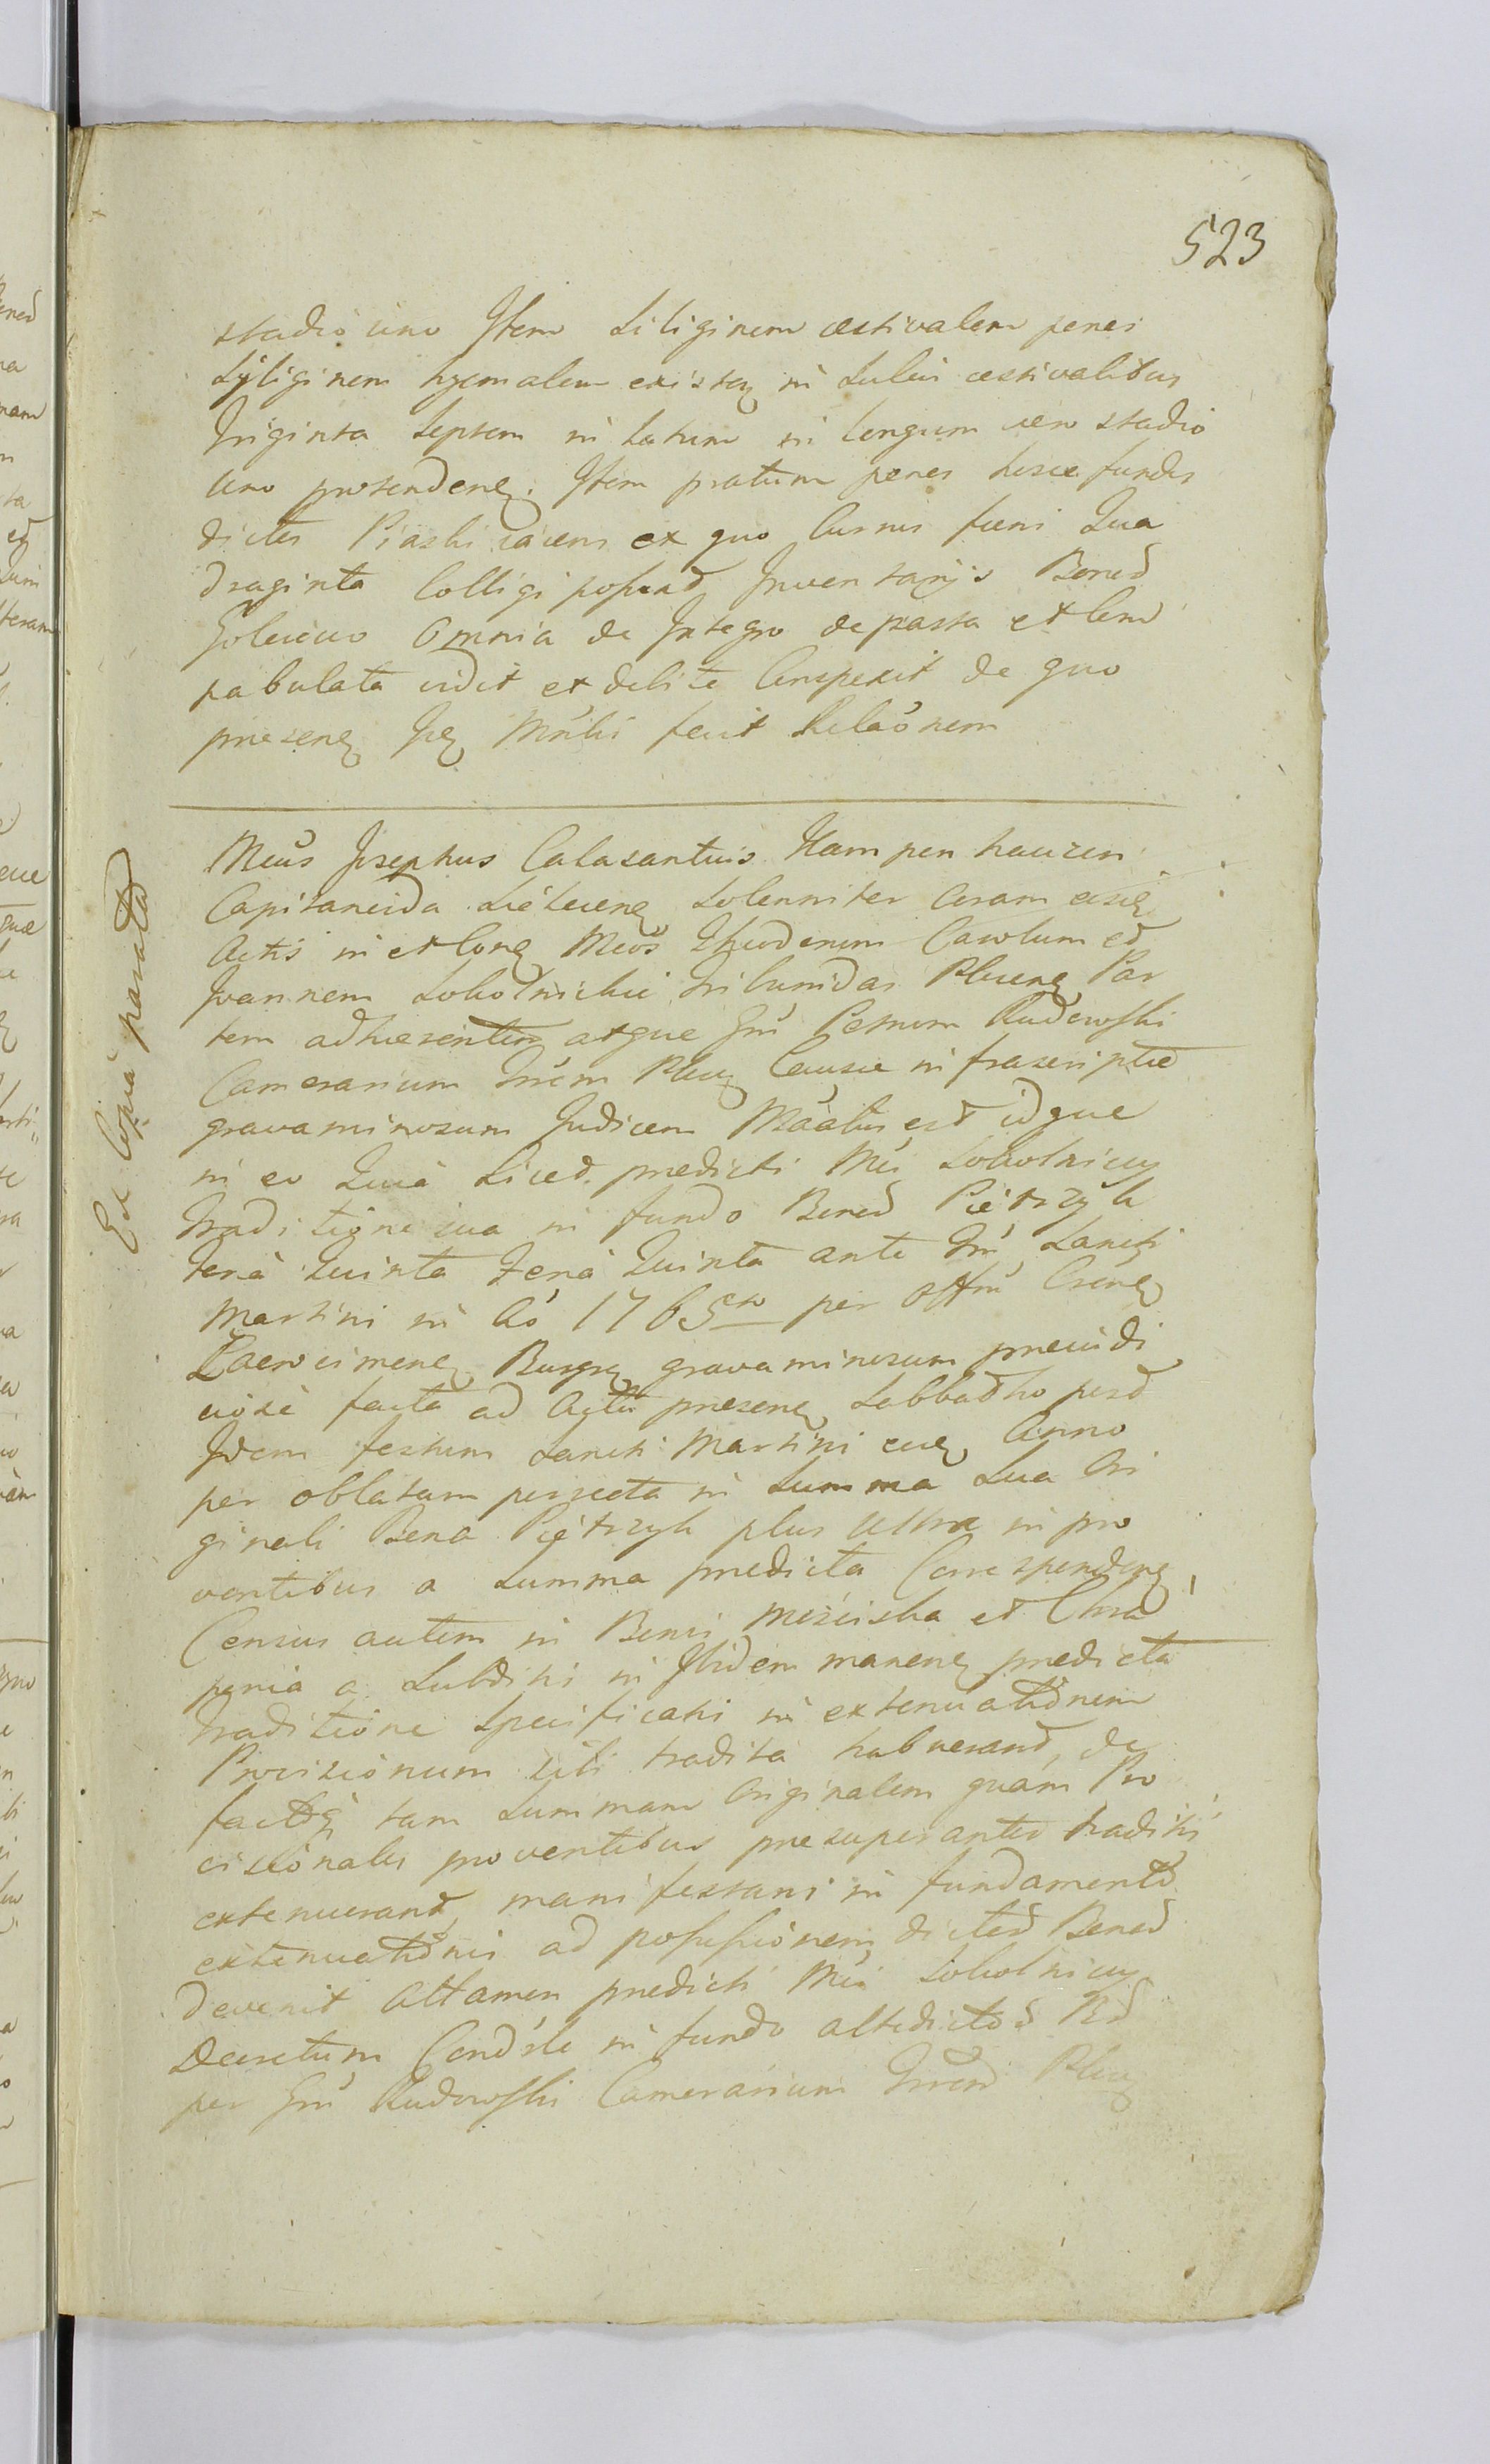 523
stadio uno Item Siliginem æstivalem penes
Syliginem hyemalem existen in Sulcis æstivalibus
Triginta Septem in Latum in longum vero stadio
Uno protendenę. Item pratum penes hisce fundis
dictis Piaski iacens ex quo Currus fæni Qua
draginta Colligi possund Inventarijs Bonod
Golewo Omnia de Integro depasta et
pabulata vidit et debite Conspexit de quo
presenę Mnłbi fecit Relaónem
Est Copia parata
Mcus Josephus Calasantius Kampenhauzen
Capitaneida Solenniter Coram
Actis in et Con Mcos Thudorum Carolum et
Joannem Sokolnickie Tribunidas Plucenę Par
tem adhærentem atque Gm Petrum Rudowski
Camerarium Trrem Plucę Causæ infrascriptæ
gravaminosum Judicem est idque
in eo Quia Liced predicti Mci Sokolniccy
Traditione sua in fundo Bonod Pietrzyk
feria Quinta feria Quinta ante Sancti
Martini in Ao 1765to per Offm
Burgrę gravaminosum preiudi
ciose facta ad Acta presenę Sabbatho post
Idem festum Sancti Martini Anno
per oblatam porrecta in Summa Sua Ori
ginali Bona Pietrzyk plus Ultra in pro
ventibus a Summa predicta Correspondenę
Census autem in Bonis Mościska et
a Subditis in Ibidem manenę predicta
Traditione Specificati in extenuationem
Provisionum sibi tradita habuerand, de
tam Summam Originalem quam Pro
visionales proventibus presuperantes traditis
extenuerant, manifestans in fundamento
extenuationis ad possessionem dictod Bonod
devenit Attamen predicti Mci Sokolniccy
Decretum in fundo altedictos
per Gm Rudowski Camerarium Trrem Plucę